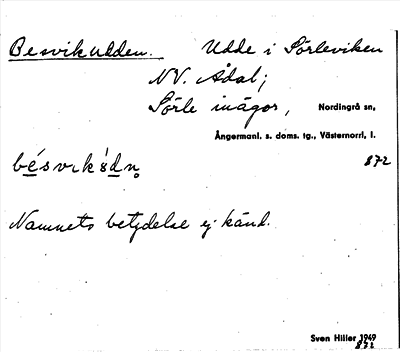 Besvikudden. Udde i Sörleviken
NV. Ådal;
Sörle inägor, Nordingrå sn,
Ångermanl. s. doms. tg., Västernorrl, l.
872
Namnets betydelse ej känd.
Sven Hiller 1949
872